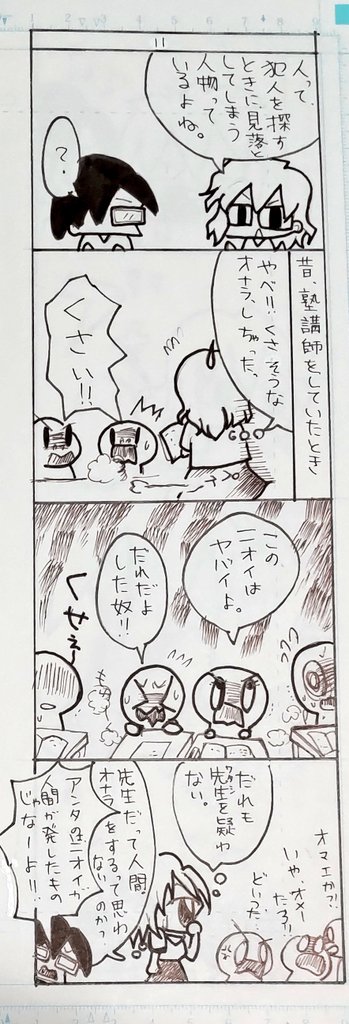 11
人って、
犯人を探す
ときに見落と
してしまう
人物って
いるよね。
?
昔、塾講師をしていたとき
やべ!!くさそうな
オナラ、しちゃった、
くさい!!
この
ニオイは
ヤバイよ。
だれだよ
した奴!!
くせぇ
だれも
先生を疑わ
ワタシ
ない。
オマエか?!
いや、オメー
だろ!!
どいつだ
先生だって人間。
オナラをするって思わ
ないのかっ
アンタのニオイが
人間が発したもの
じゃなーよ!!